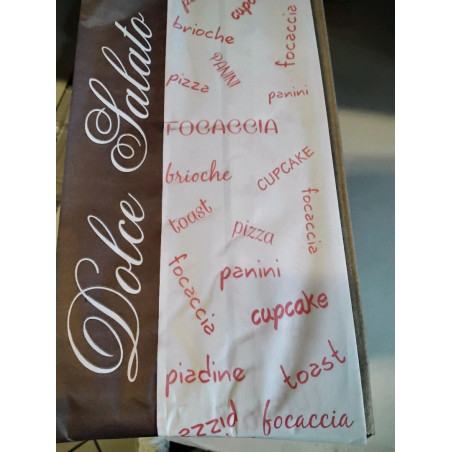 Dolce Salato
cupcake
focaccia
brioche
PANINI
pizza
panini
FOCACCIA
CUPCAKE
brioche
focaccia
toast
pizza
focaccia
panini
cupcake
piadine
toast
pizza
focaccia